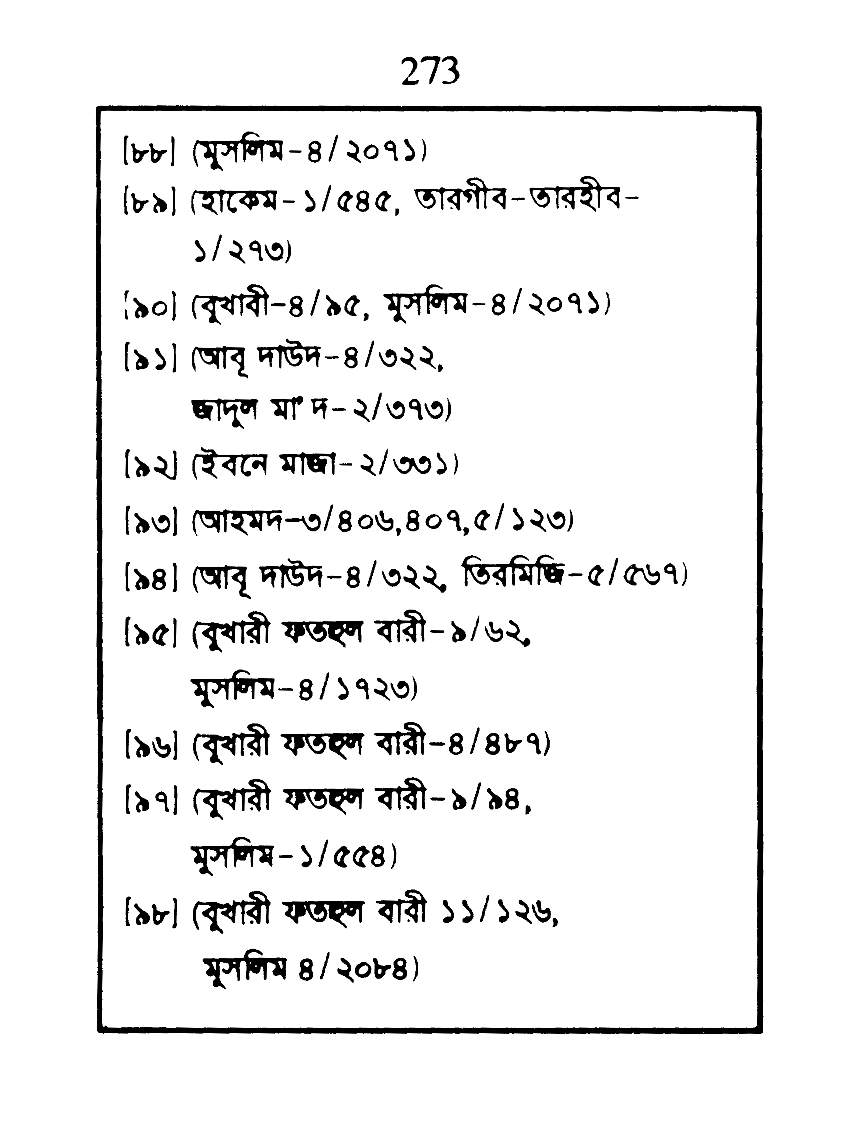 273
[৮৮] (মুসলিম-৪/২০৭১)
[৮৯] (হাকেম-১/৫৪৫, তারগীব-তারহীব-
১/২৭৩)
[৯০] (বুখাবী-৪/৯৫, মুসলিম-৪/২০৭১)
[৯১] (আবূ দাউদ-৪/৩২২,
জাদুল মা'দ-২/৩৭৩)
[৯২] (ইবনে মাজা-২/৩৩১)
[৯৩] (আহমদ-৩/৪০৬,৪০৭,৫/১২৩)
[৯৪] (আবূ দাউদ-৪/৩২২, তিরমিজি-৫/৫৬৭)
[৯৫] (বুখারী ফতহুল বারী-৯/৬২,
মুসলিম-৪/১৭২৩)
[৯৬] (বুখারী ফতহুল বারী-৪/৪৮৭)
[৯৭] (বুখারী ফতহুল বারী-৯/৯৪,
মুসলিম-১/৫৫৪)
[৯৮] (বুখারী ফতহুল বারী ১১/১২৬,
মুসলিম ৪/২০৮৪)